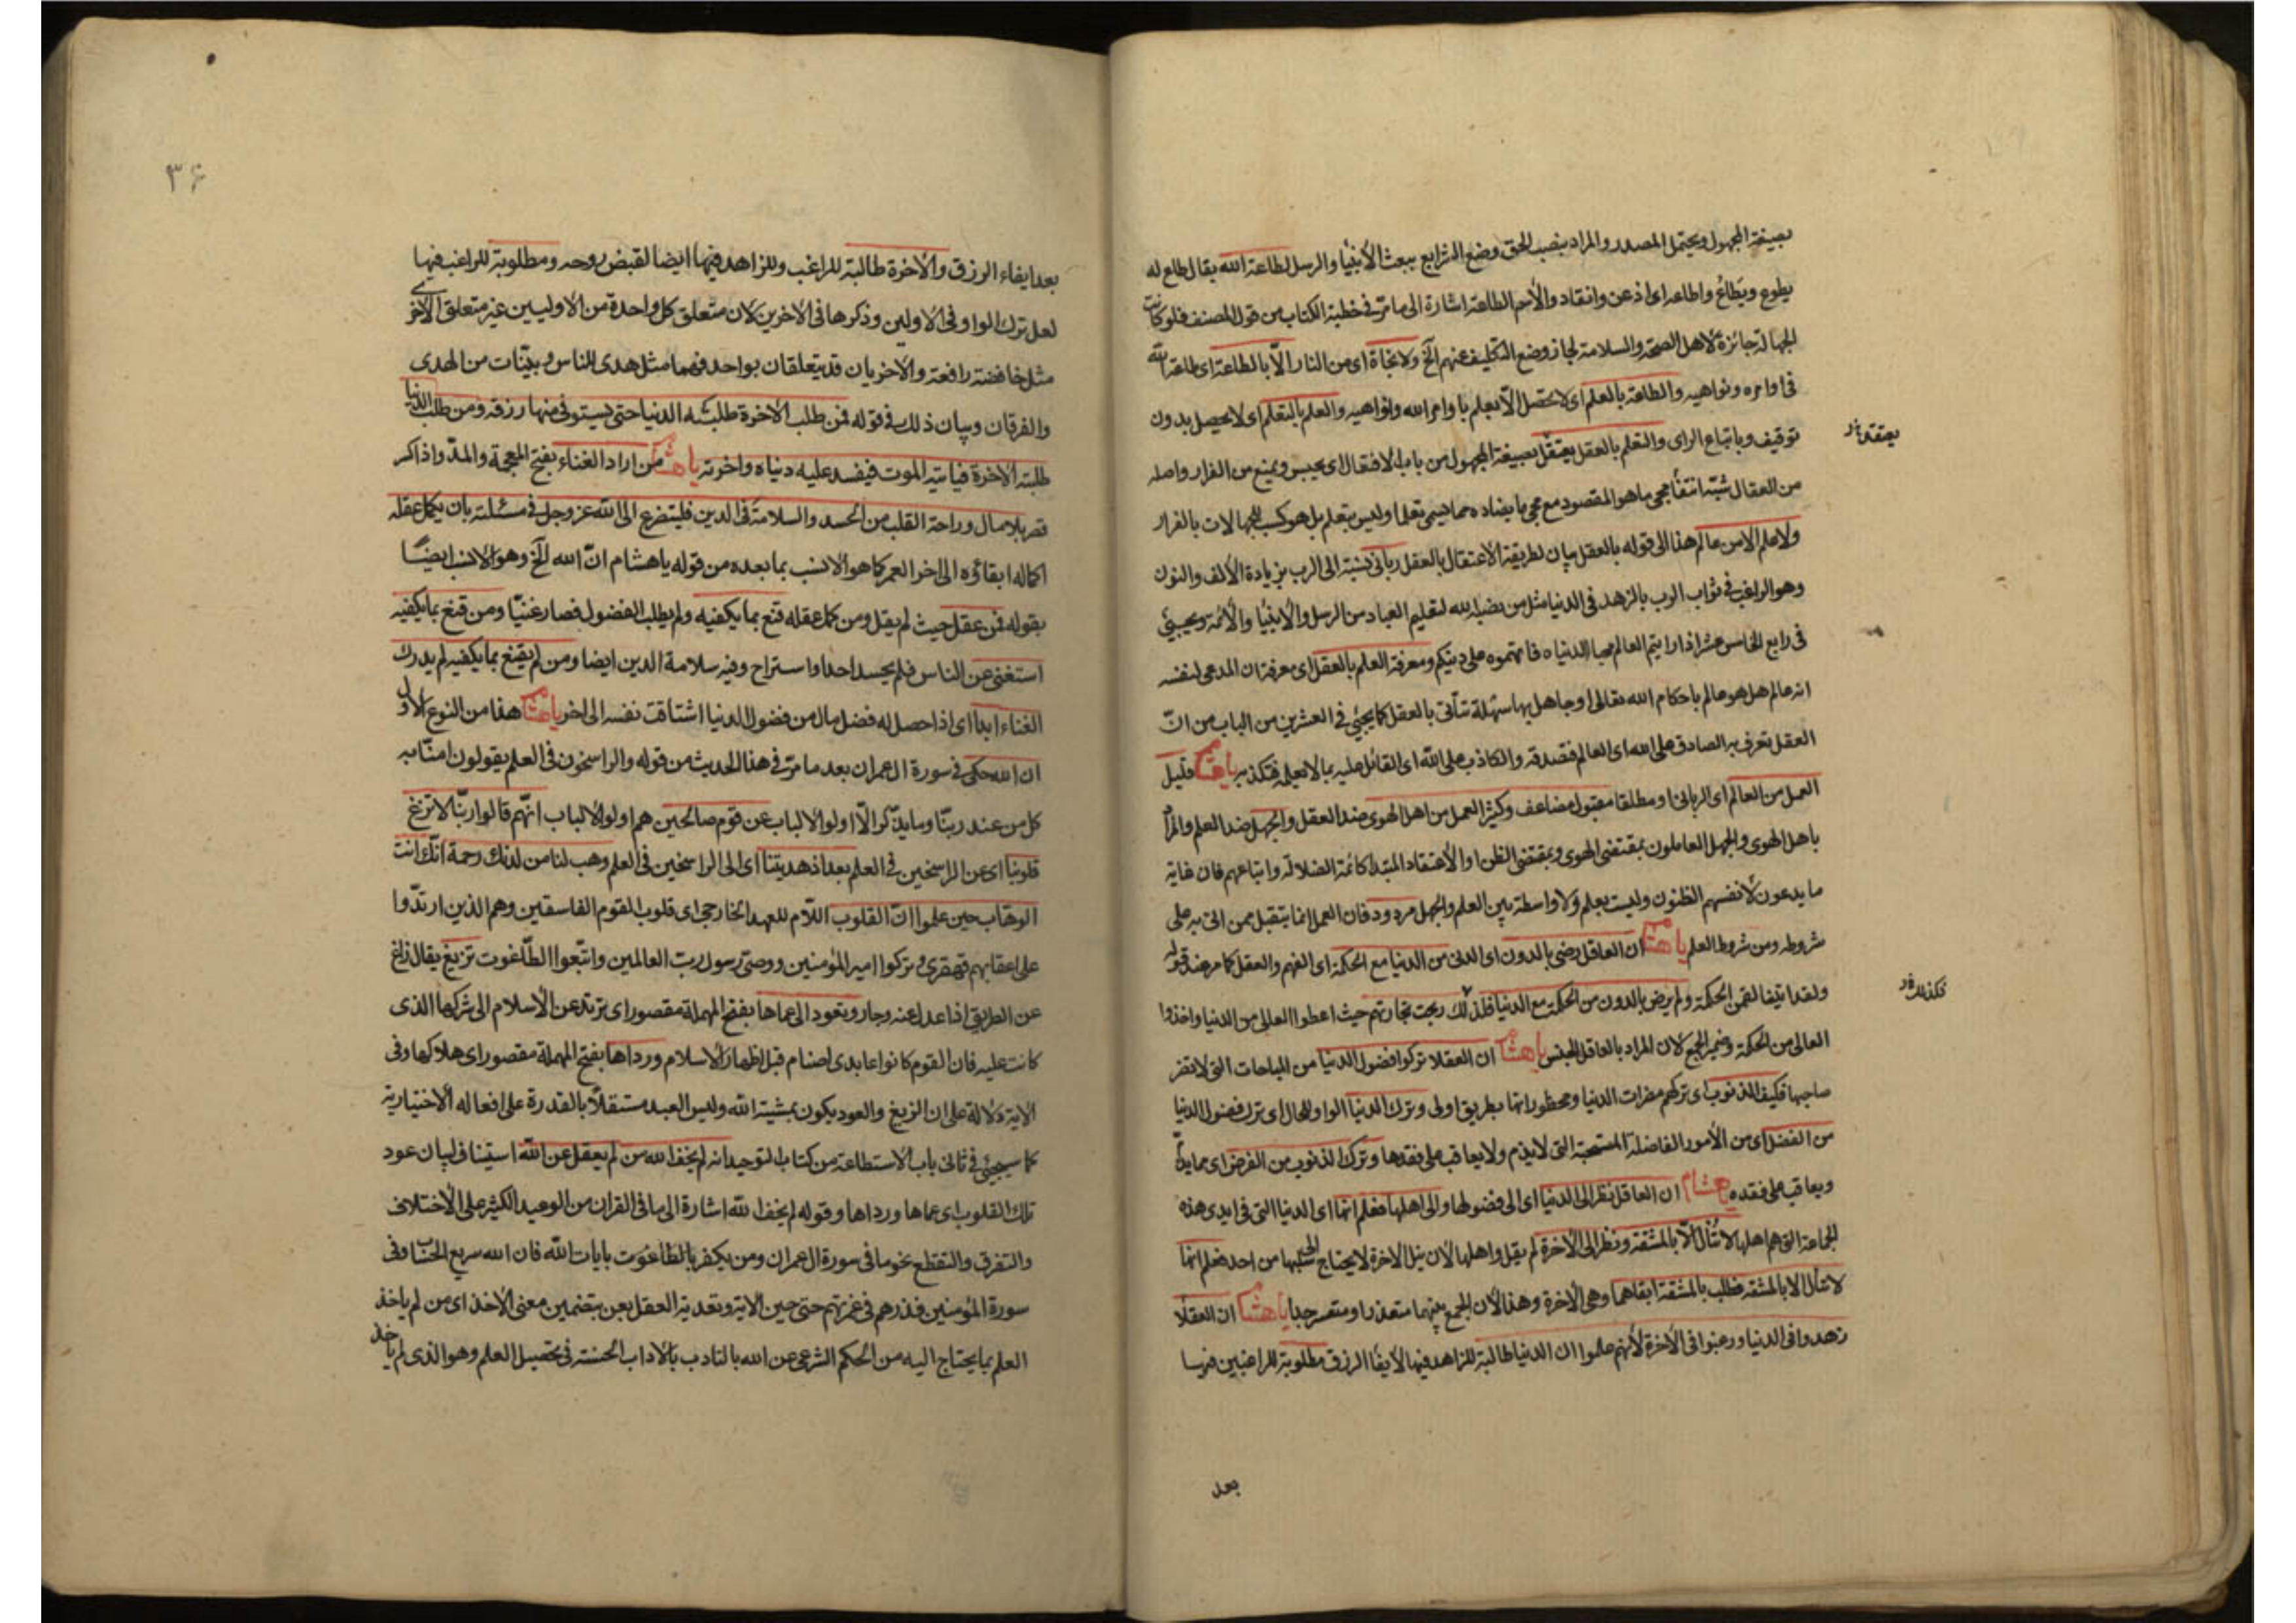 بصيغة المجهول ويحتمل المصدر والمراد بنصب الحق وضع الشرايع ببعث الأنبيا والرسل لطاعة الله يقال طاع له
يطوع ويطاع واطاعه اى اذعن وانقاد والأسم الطاعة اشارة الى ما مر فى خطبة الكتاب من قول المصنف فلو كانت
الجهالة جائزة لاهل الصحة والسلامة لجاز وضع التكليف عنهم الخ ولا نجاة اى من النار الّا بالطاعة اى طاعة الله
فى اوامره ونواهيه والطاعة بالعلم اى لا تحصل الّا بعلم باوامر الله ونواهيه والعلم بالتعلم اى لا يحصل بدون
توقيف وباتباع الراى والتعلم بالعقل يعتقل بصيغة المجهول من باب الافتعال اى يحبس ويمنع من الفرار واصله
يعتقد
من العقال شبّه مجى ما هو المقصود مع مجى ما يضاده مما يسمى تعلما وليس بتعلم بل هو كسب للجهالات بالفرار
ولا علم الا من عالم هذا الى قوله بالعقل بيان لطريقة الأعتقال بالعقل ربانى نسبة الى الرب بزيادة الألف والنون
وهو الراغب فى ثواب الرب بالزهد فى الدنيا مثل من نصبه الله لتعليم العباد من الرسل والأنبيا والأئمة ويجيئ
فى رابع الخامس عشر اذا رايتم العالم محبا لدنياه فاتهموه على دينكم ومعرفة العلم بالعقل اى معرفة ان المدعى لنفسه
انه عالم هل هو عالم باحكام الله تعالى او جاهل بها سهلة تتأتى بالعقل كما يجيئ فى العشرين من الباب من انّ
العقل تعرف به الصادق على الله اى العالم فتصدقه والكاذب على الله اى القائل عليه بما لا يعلمه فتكذبه يا هشام قليل
العمل من العالم اى الربانى او مطلقا مقبول مضاعف وكثير العمل من اهل الهوى ضد العقل والجهل ضد العلم والمراد
باهل الهوى والجهل العاملون بمقتضى الهوى وبمقتضى الظن او الأعتقاد المبتدا كائمة الضلالة واتباعهم فان غاية
ما يدعون لأنفسهم الظنون وليست بعلم ولا واسطة بين العلم والجهل مردود فان العمل انما يتقبل ممن اتى به على
شروطه ومن شروط العلم يا هشام ان العاقل رضى بالدون اى الدنى من الدنيا مع الحكمة اى الفهم والعقل كما مر عند قوله
ولقد اتينا لقمن الحكمة ولم يرض بالدون من الحكمة مع الدنيا فلذلك ربحت تجارتهم حيث اعطوا العالى من الدنيا واخذوا
فكذلك
العالى من الحكمة وضمير الجمع لان المراد بالعاقل الجنس يا هشام ان العقلا تركوا فضول الدنيا من المباحات التى لا تضر
صاحبها فكيف الذنوب اى تركهم مضرات الدنيا ومحظوراتها بطريق اولى وترك الدنيا الواو للحال اى ترك فضول الدنيا
من الفضل اى من الأمور الفاضلة المستحبة التى لا يذم ولا يعاقب على فقدها وترك الذنوب من الفرض اى مما يذم
ويعاقب على فقده يا هشام ان العاقل نظر الى الدنيا اى الى فضولها والى اهلها فعلم انها اى الدنيا التى فى ايدى هذه
الجماعة التى هم اهلها لا تنال الّا بالمشقة ونظر الى الأخرة لم يقل واهلها لأن نيل الأخرة لا يحتاج الى من احد فعلم انها
لا تنال الا بالمشقة فطلب بالمشقة ابقاهما وهى الأخرة وهذا لأن الجمع بينهما متعذر او متعسر جدا يا هشام ان العقلا
زهدوا فى الدنيا ورغبوا فى الأخرة لأنهم علموا ان الدنيا طالبة للزاهد فيها لأيفا الرزق مطلوبة للراغبين فيها
بعد
٣۶
بعد ايفاء الرزق والأخرة طالبة للراغب وللزاهد فيها ايضا لقبض روحه ومطلوبة للراغب فيها
لعل ترك الواو فى الاولين وذكرها فى الأخرين لان متعلق كل واحدة من الاوليين غير متعلق الأخرى
مثل خافضة رافعة والأخريان قد يتعلقان بواحد فهما مثل هدى للناس وبينّات من الهدى
والفرقان وبيان ذلك فى قوله فمن طلب الأخرة طلبته الدنيا حتى يستوفى منها رزقه ومن طلب الدنيا
طلبته الأخرة فياتيه الموت فيفسد عليه دنياه واخرته يا هشام من اراد الغناء بفتح المعجمة والمدّ واذا كسر
قصر بلا مال وراحة القلب من الحسد والسلامة فى الدين فليتضرع الى الله عز وجل فى مسئلته بان يكمل عقله
اكماله ابقاؤه الى اخر العمر كما هو الانسب بما بعده من قوله يا هشام انّ الله الخ وهو الانسب ايضًا
بقوله فمن عقل حيث لم يقل ومن كمل عقله قنع بما يكفيه ولم يطلب الفضول فصار غنيّا ومن قنع بما يكفيه
استغنى عن الناس فلم يحسد احدا واستراح وفيه سلامة الدين ايضا ومن لم يقنع بما يكفيه لم يدرك
الغناء ابدا اى اذا حصل له فضل مال من فضول الدنيا اشتاقت نفسه الى اخر يا هشام هذا من النوع الأول
ان الله حكى فى سورة ال عمران بعد ما مرّ فى هذا الحديث من قوله والراسخون فى العلم يقولون امنّا به
كل من عند ربنّا وما يذّكر الّا اولوا الألباب عن قوم صالحين هم اولو الألباب انّهم قالوا ربنّا لا تزغ
قلوبنا اى عن الراسخين فى العلم بعد اذ هديتنا اى الى الراسخين فى العلم وهب لنا من لدنك رحمة انّك انت
الوهّاب حين علموا انّ القلوب اللّام للعهد الخارجى اى قلوب القوم الفاسقين وهم الذين ارتدّوا
على اعقابهم قهقرى وتركوا امير المؤمنين ووصىّ رسول ربّ العالمين واتّبعوا الطّاغوت تزيغ يقال زاغ
عن الطريق اذا عدل عنه وجار وتعود الى عماها بفتح المهملة مقصورا اى ترتد عن الأسلام الى شركها الذى
كانت عليه فان القوم كانوا عابدى اصنام قبل اظهار الاسلام ورداها بفتح المهملة مقصورا اى هلاكها وفى
الاية دلالة على ان الزيغ والعود يكون بمشيّة الله وليس العبد مستقلاّ بالقدرة على افعاله الأختيارية
كما سيجيئ فى ثانى باب الأستطاعة من كتاب التوحيد انه لم يخف الله من لم يعقل عن الله استيناف لبيان عود
تلك القلوب اى عماها ورداها وقوله لم يخف الله اشارة الى ما فى القران من الوعيد الكثير على الأختلاف
والتفرق والتقطع نحو ما فى سورة ال عمران ومن يكفر بايات الله فان الله سريع الحساب وفى
سورة المؤمنين فذرهم فى غمرتهم حتى حين الاية وتعدية العقل بعن بتضمين معنى الأخذ اى من لم ياخذ
العلم بما يحتاج اليه من الحكم الشرعى عن الله بالتادب بالأداب الحسنة فى تحصيل العلم وهو الذى لم ياخذ